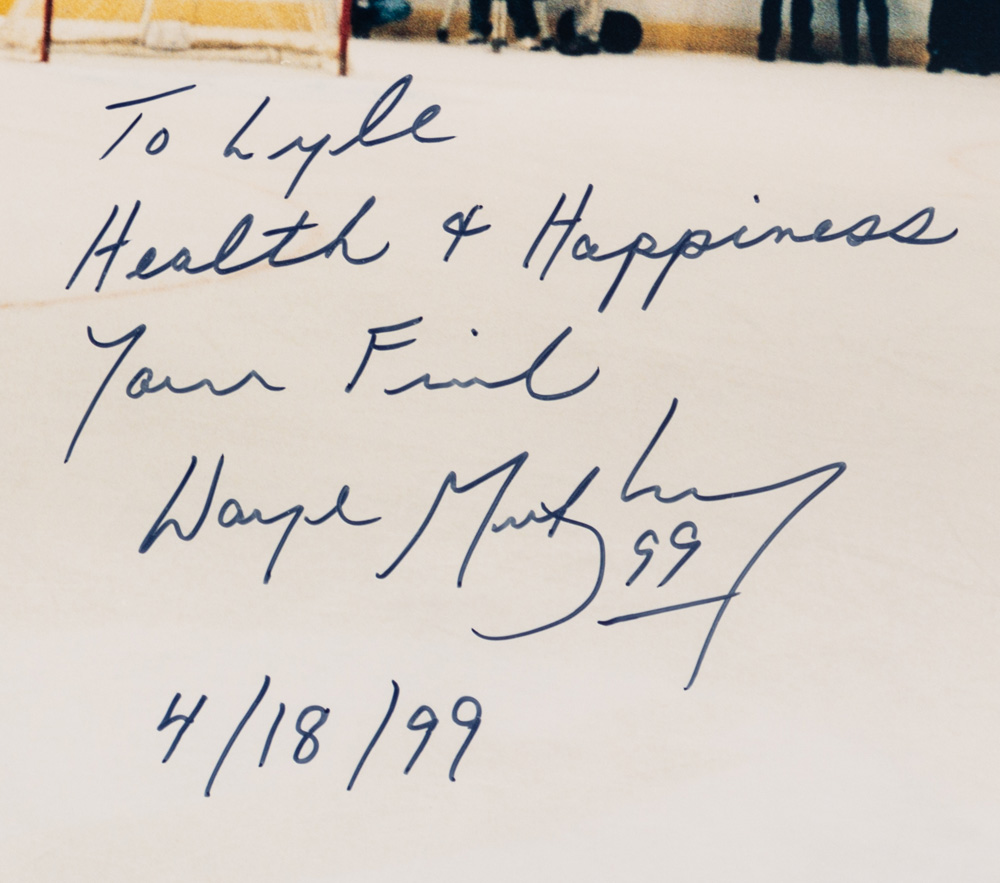 To Lyle
Health & Happiness
Your Friend
Wayne Gretzky
99
4/18/99